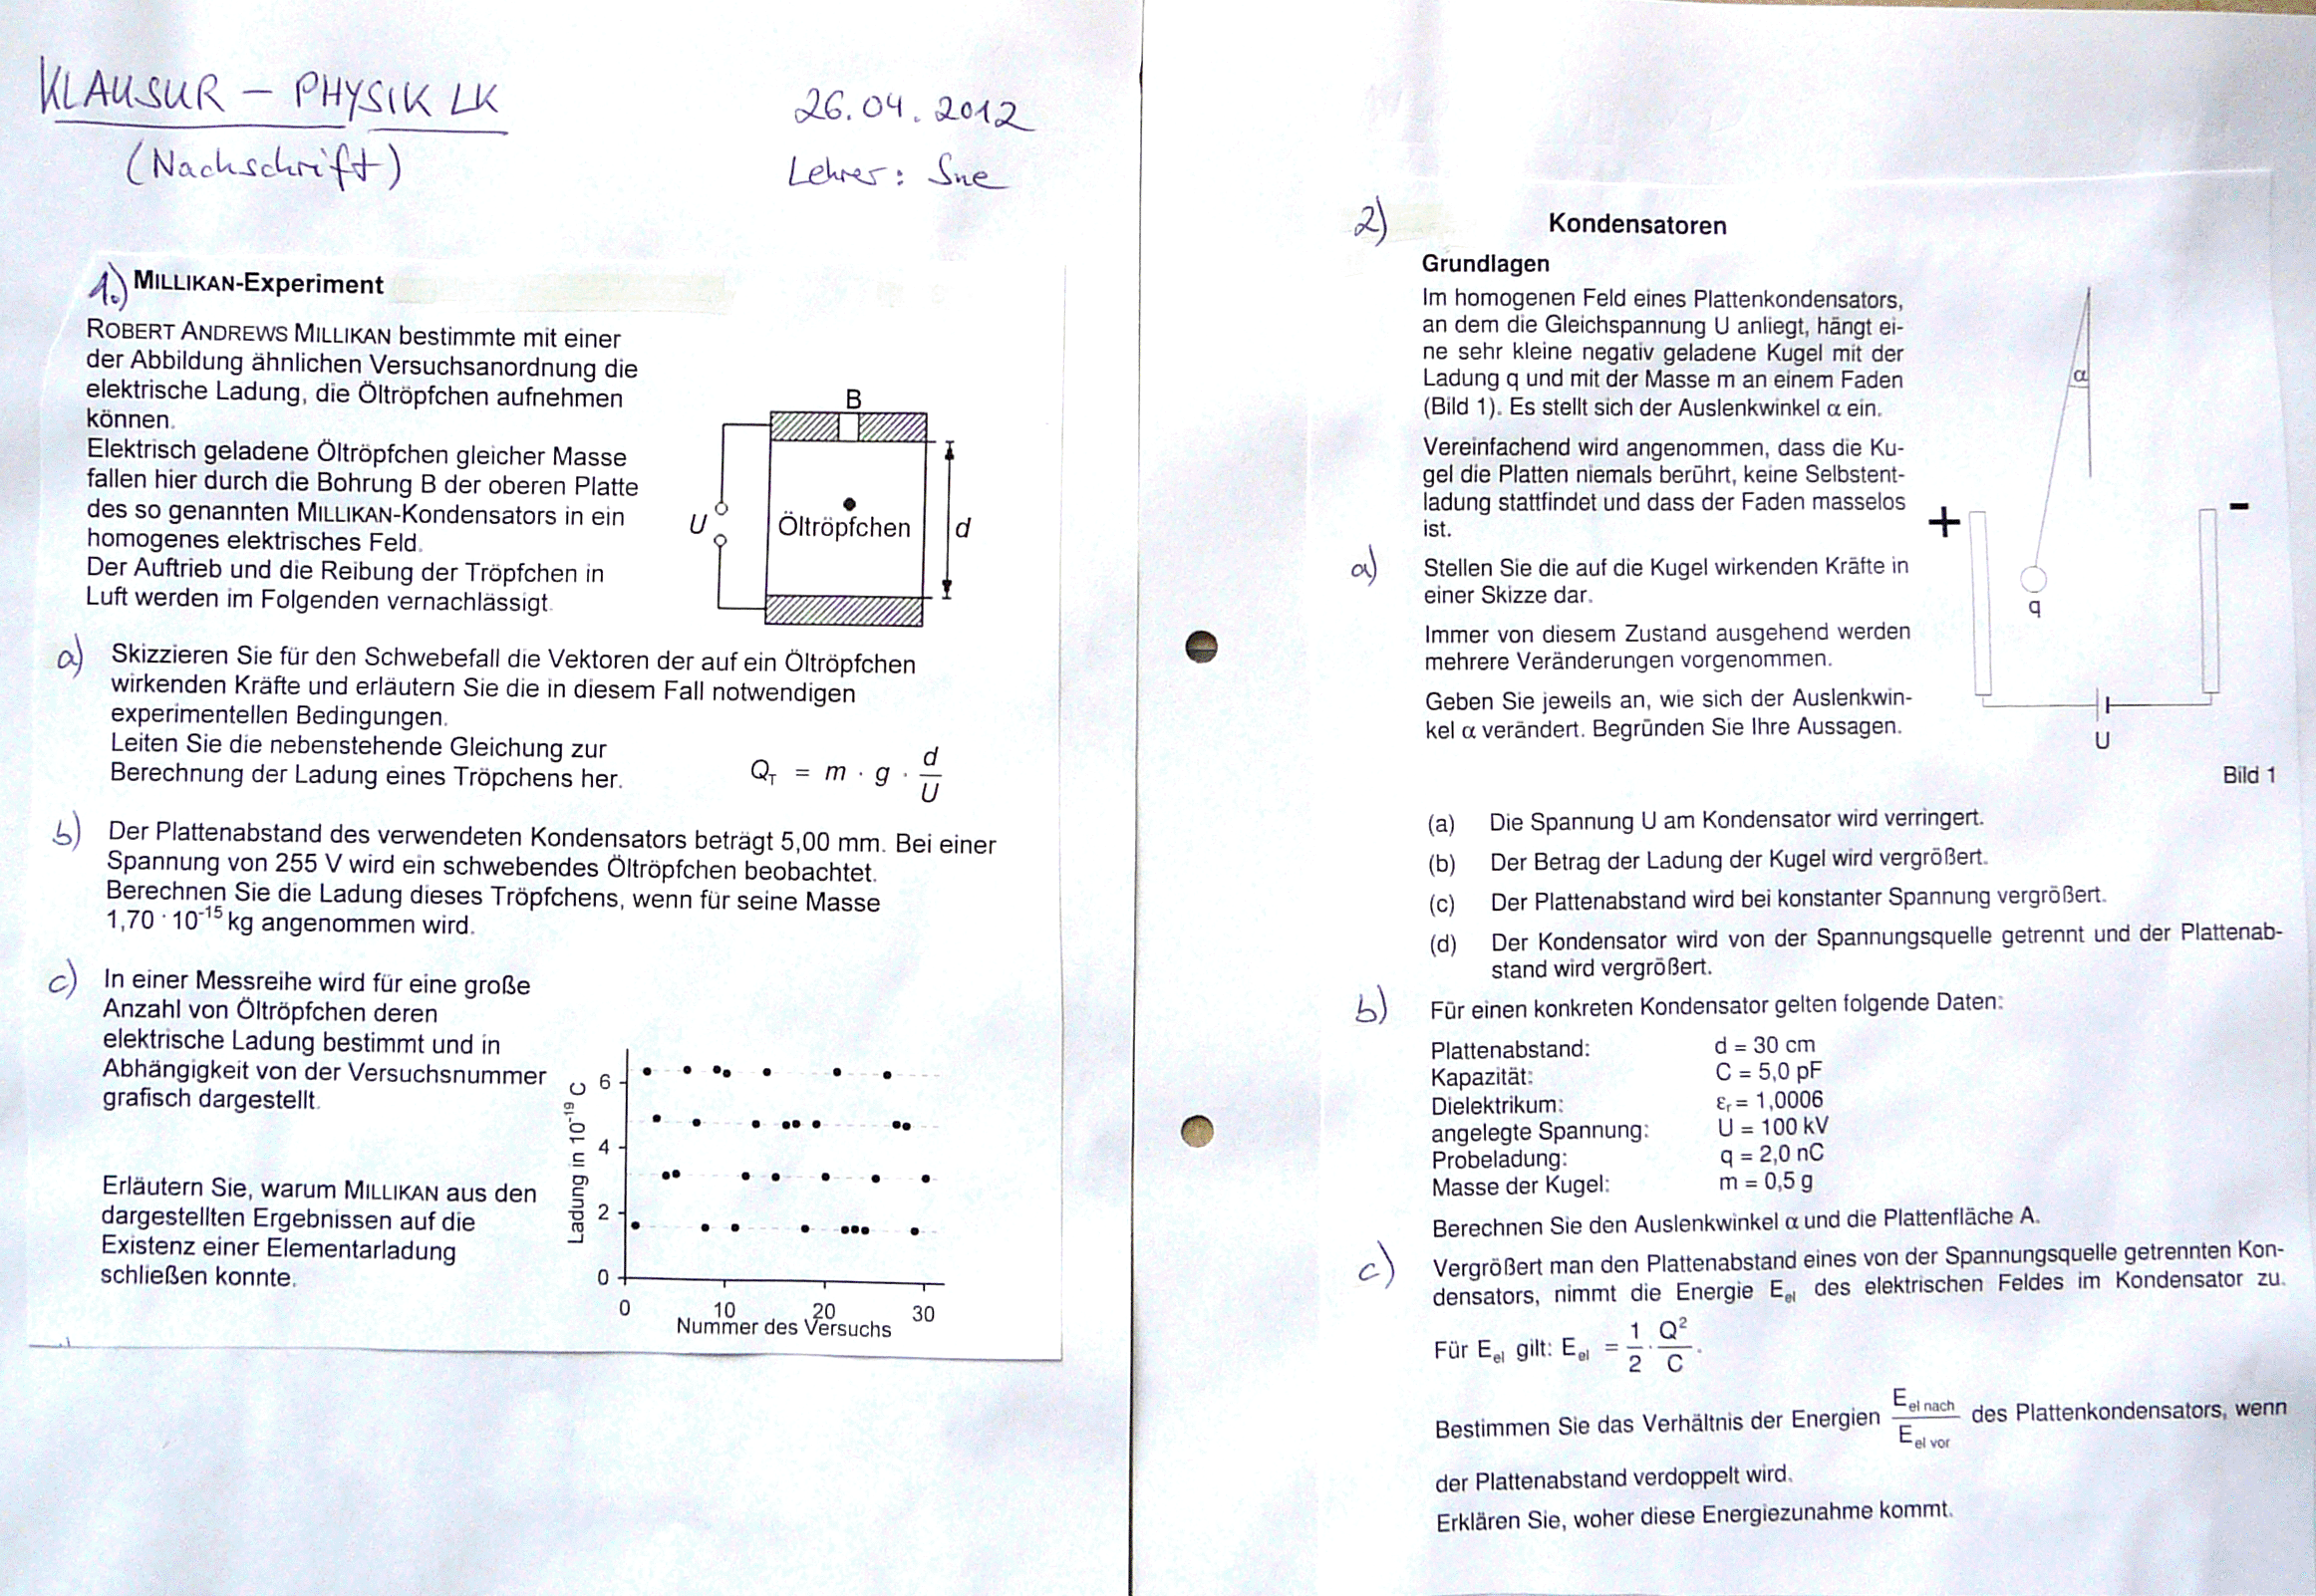 KLAUSUR – PHYSIK LK
(Nachschrift)
26.04.2012
Lehrer: Sne
1.) MILLIKAN-Experiment
ROBERT ANDREWS MILLIKAN bestimmte mit einer
der Abbildung ähnlichen Versuchsanordnung die
elektrische Ladung, die Öltröpfchen aufnehmen
können.
Elektrisch geladene Öltröpfchen gleicher Masse
fallen hier durch die Bohrung B der oberen Platte
des so genannten MILLIKAN-Kondensators in ein
homogenes elektrisches Feld.
Der Auftrieb und die Reibung der Tröpfchen in
Luft werden im Folgenden vernachlässigt.
B
U
Öltröpfchen
d
a) Skizzieren Sie für den Schwebefall die Vektoren der auf ein Öltröpfchen
wirkenden Kräfte und erläutern Sie die in diesem Fall notwendigen
experimentellen Bedingungen.
Leiten Sie die nebenstehende Gleichung zur
Berechnung der Ladung eines Tröpchens her.
Q_T = m · g · d/U
b) Der Plattenabstand des verwendeten Kondensators beträgt 5,00 mm. Bei einer
Spannung von 255 V wird ein schwebendes Öltröpfchen beobachtet.
Berechnen Sie die Ladung dieses Tröpfchens, wenn für seine Masse
1,70 · 10⁻¹⁵ kg angenommen wird.
c) In einer Messreihe wird für eine große
Anzahl von Öltröpfchen deren
elektrische Ladung bestimmt und in
Abhängigkeit von der Versuchsnummer
grafisch dargestellt.
Erläutern Sie, warum MILLIKAN aus den
dargestellten Ergebnissen auf die
Existenz einer Elementarladung
schließen konnte.
Ladung in 10⁻¹⁹ C
6
4
2
0
0 10 20 30
Nummer des Versuchs
2) Kondensatoren
Grundlagen
Im homogenen Feld eines Plattenkondensators,
an dem die Gleichspannung U anliegt, hängt ei-
ne sehr kleine negativ geladene Kugel mit der
Ladung q und mit der Masse m an einem Faden
(Bild 1). Es stellt sich der Auslenkwinkel α ein.
Vereinfachend wird angenommen, dass die Ku-
gel die Platten niemals berührt, keine Selbstent-
ladung stattfindet und dass der Faden masselos
ist.
a) Stellen Sie die auf die Kugel wirkenden Kräfte in
einer Skizze dar.
Immer von diesem Zustand ausgehend werden
mehrere Veränderungen vorgenommen.
Geben Sie jeweils an, wie sich der Auslenkwin-
kel α verändert. Begründen Sie Ihre Aussagen.
α
+
-
q
U
Bild 1
(a) Die Spannung U am Kondensator wird verringert.
(b) Der Betrag der Ladung der Kugel wird vergrößert.
(c) Der Plattenabstand wird bei konstanter Spannung vergrößert.
(d) Der Kondensator wird von der Spannungsquelle getrennt und der Plattenab-
stand wird vergrößert.
b) Für einen konkreten Kondensator gelten folgende Daten:
Plattenabstand: d = 30 cm
Kapazität: C = 5,0 pF
Dielektrikum: εᵣ = 1,0006
angelegte Spannung: U = 100 kV
Probeladung: q = 2,0 nC
Masse der Kugel: m = 0,5 g
Berechnen Sie den Auslenkwinkel α und die Plattenfläche A.
c) Vergrößert man den Plattenabstand eines von der Spannungsquelle getrennten Kon-
densators, nimmt die Energie E_el des elektrischen Feldes im Kondensator zu.
Für E_el gilt: E_el = 1/2 · Q²/C.
Bestimmen Sie das Verhältnis der Energien E_el nach/E_el vor des Plattenkondensators, wenn
der Plattenabstand verdoppelt wird.
Erklären Sie, woher diese Energiezunahme kommt.